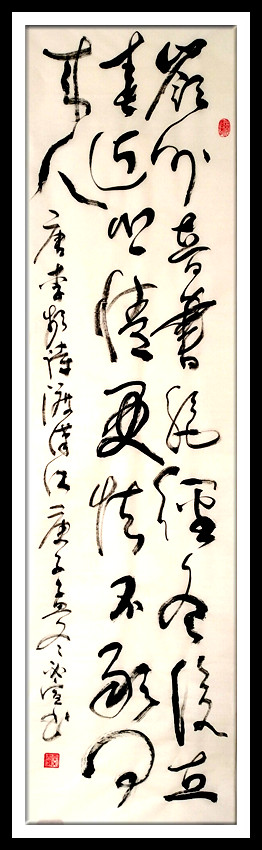 嶺外音書絕經冬復立
春近鄉情更怯不敢問
來人
唐李頻詩渡漢江庚子孟冬書